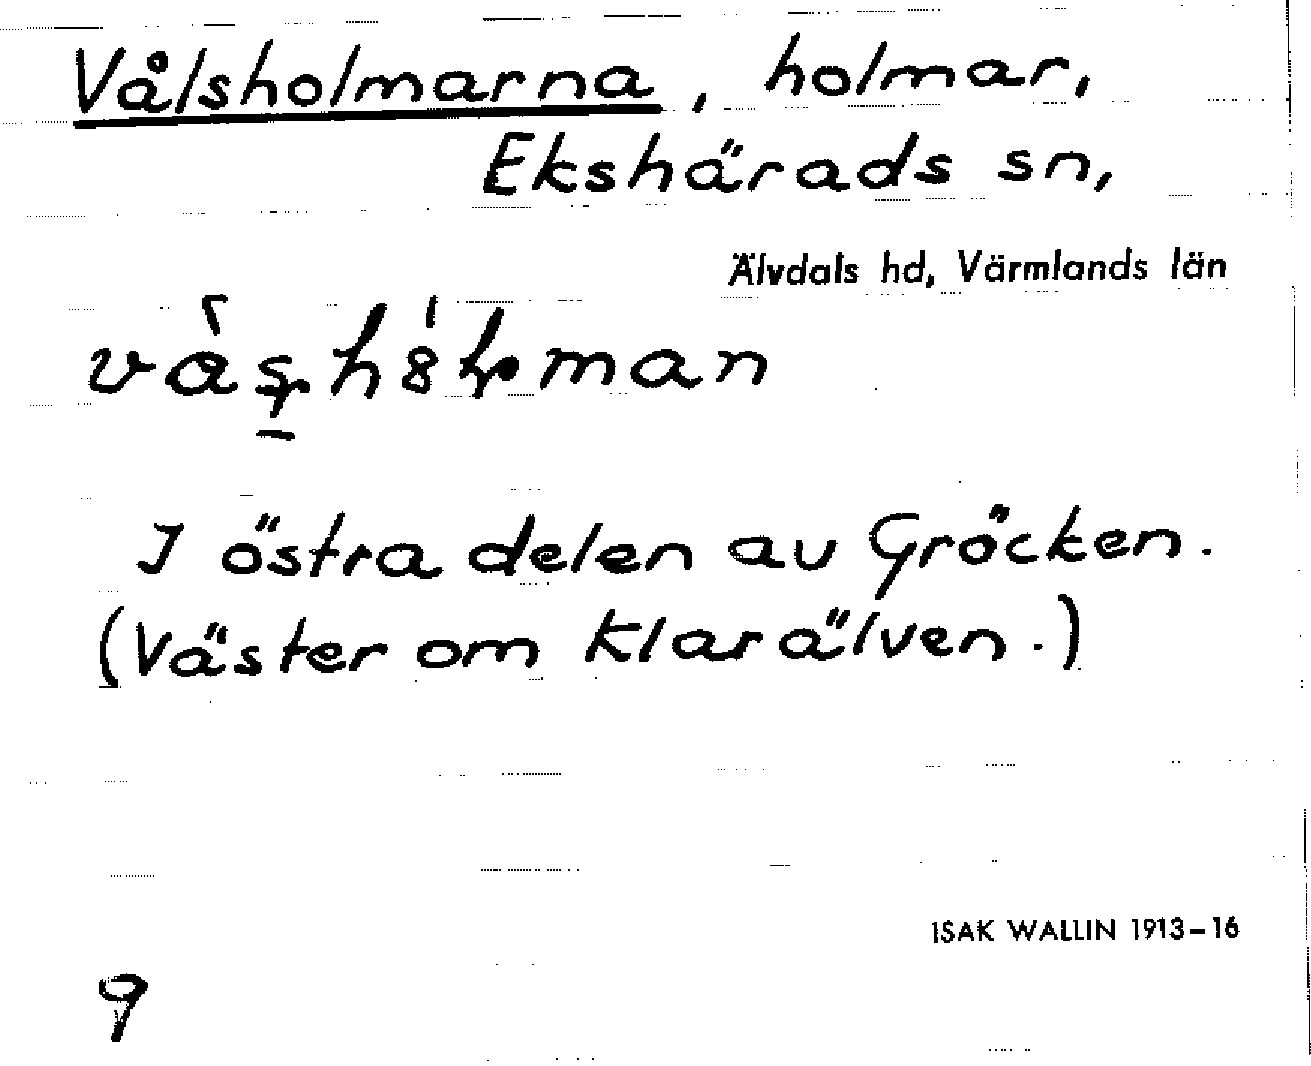 Vålsholmarna, holmar,
Ekshärads sn,
Älvdals hd, Värmlands län
I östra delen av Gröcken.
(Väster om Klarälven.)
ISAK WALLIN 1913-16
9